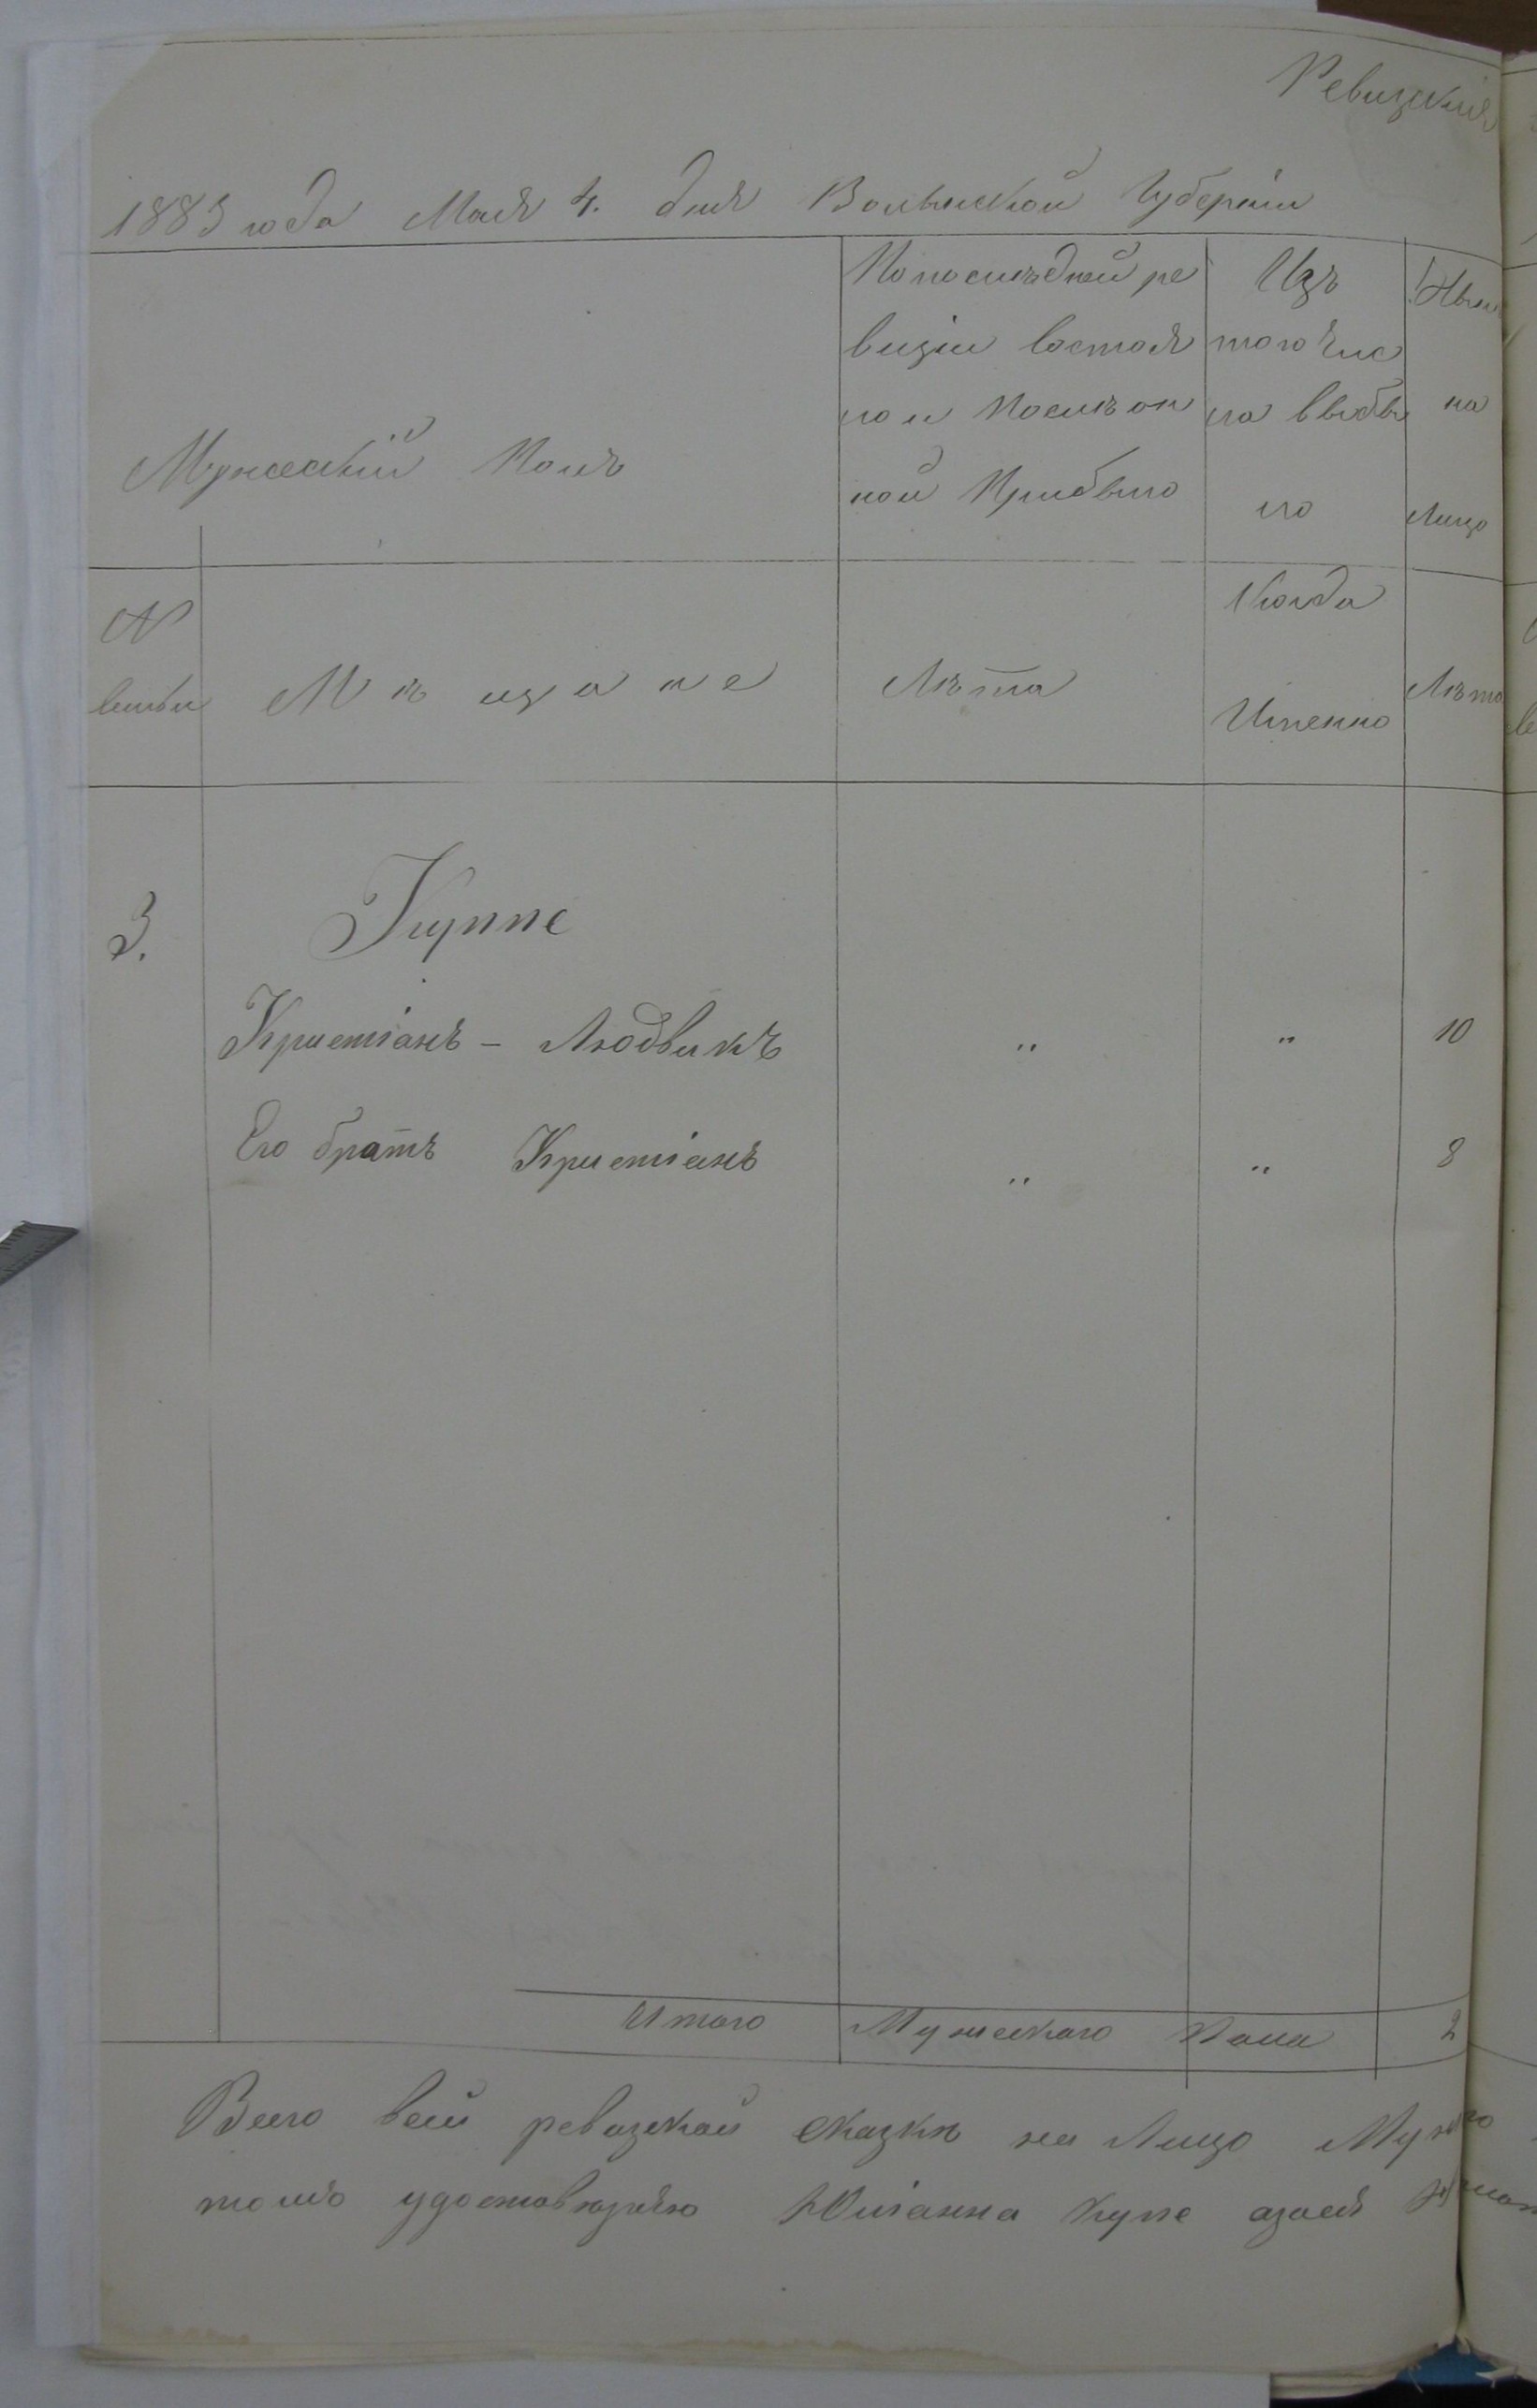 Ревизския
1883 года Мая 4. дня Волынской Губерніи
Мужескій Полъ
По последней ре
визіи состоя
ло и После он
ной Прибыло
Изъ
того чис
ла выбы
ло
Нын
на
Лицо
N
семьи
Мѣщане
Лѣта
Когда
Именно
Лѣта
3.
Куппе
Кристіанъ - Людвикъ " " 10
Его братъ Кристіанъ " " 8
Итого Мужескаго Пола 2
Всего всей ревизской сказкѣ на Лицо
Юліанна Купе